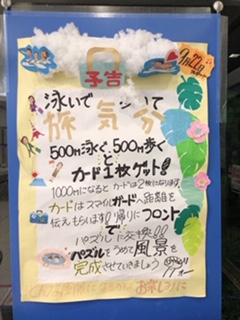 予告
泳いで
旅気分
500m泳ぐ、500m歩く
と
カード1枚ゲット!!
1000mになるとカードは2枚になります
カードはスマイルガードへ距離を
伝えもらいます!帰りにフロント
で
パズルに交換!!!
パズルをうめて風景を
完成させていきましょう